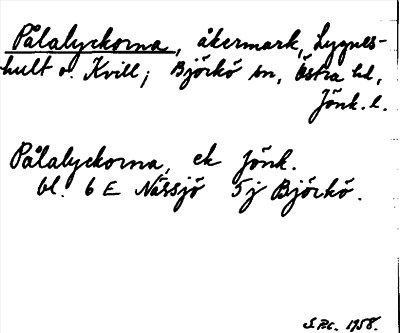 Pålalyckorna, åkermark, Lygnes-
hult o. Kvill, Björkö sn, Östra hd,
Jönk. l.
Pålalyckorna, ek Jönk.
bl. 6 E Nässjö 5j Björkö.
1958.